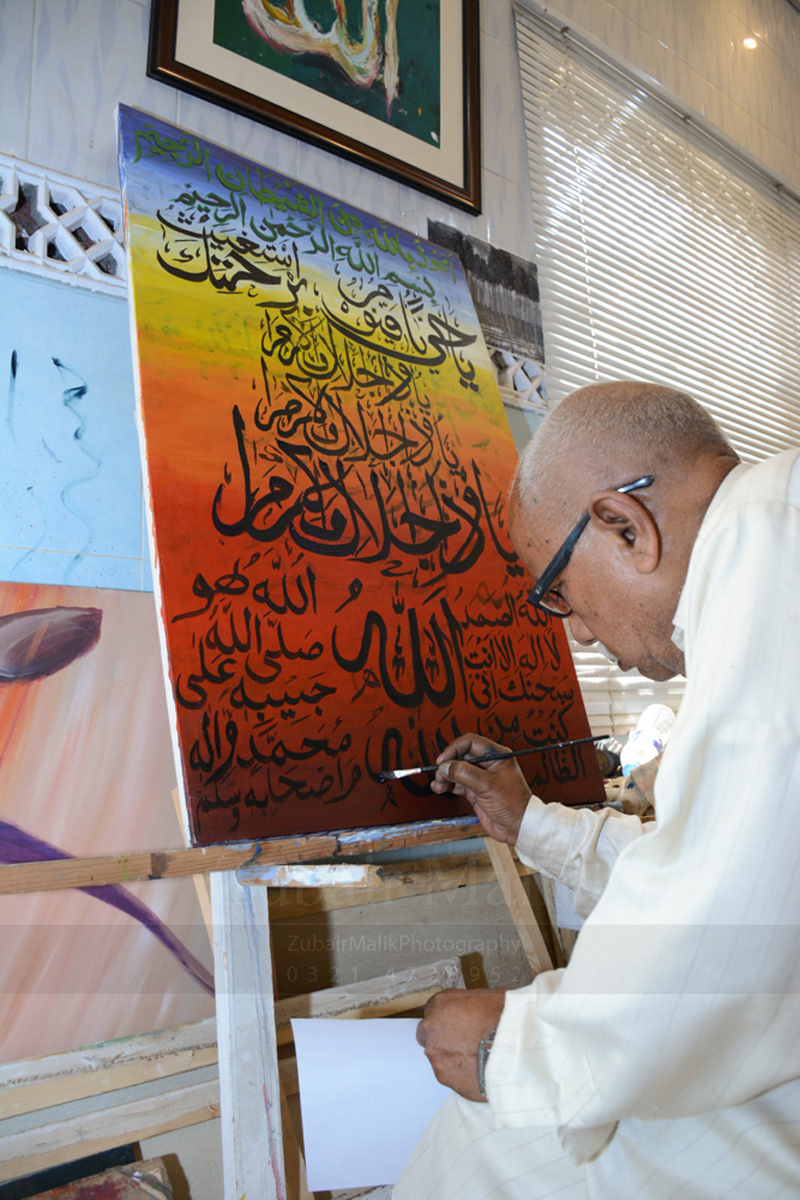 اعوذ بالله من الشيطان الرجيم
بسم الله الرحمن الرحيم
يا حي يا قيوم
برحمتك استغيث
يا ذوالجلال والاكرام
يا ذوالجلال والاكرام
يا ذوالجلال والاكرام
الله الصمد
لا اله الا انت
سبحنك انى
كنت من
الظالمين
الله
الله هو
صلى الله على
حبيبه
محمد واله
واصحابه وسلم
ZubairMalikPhotography